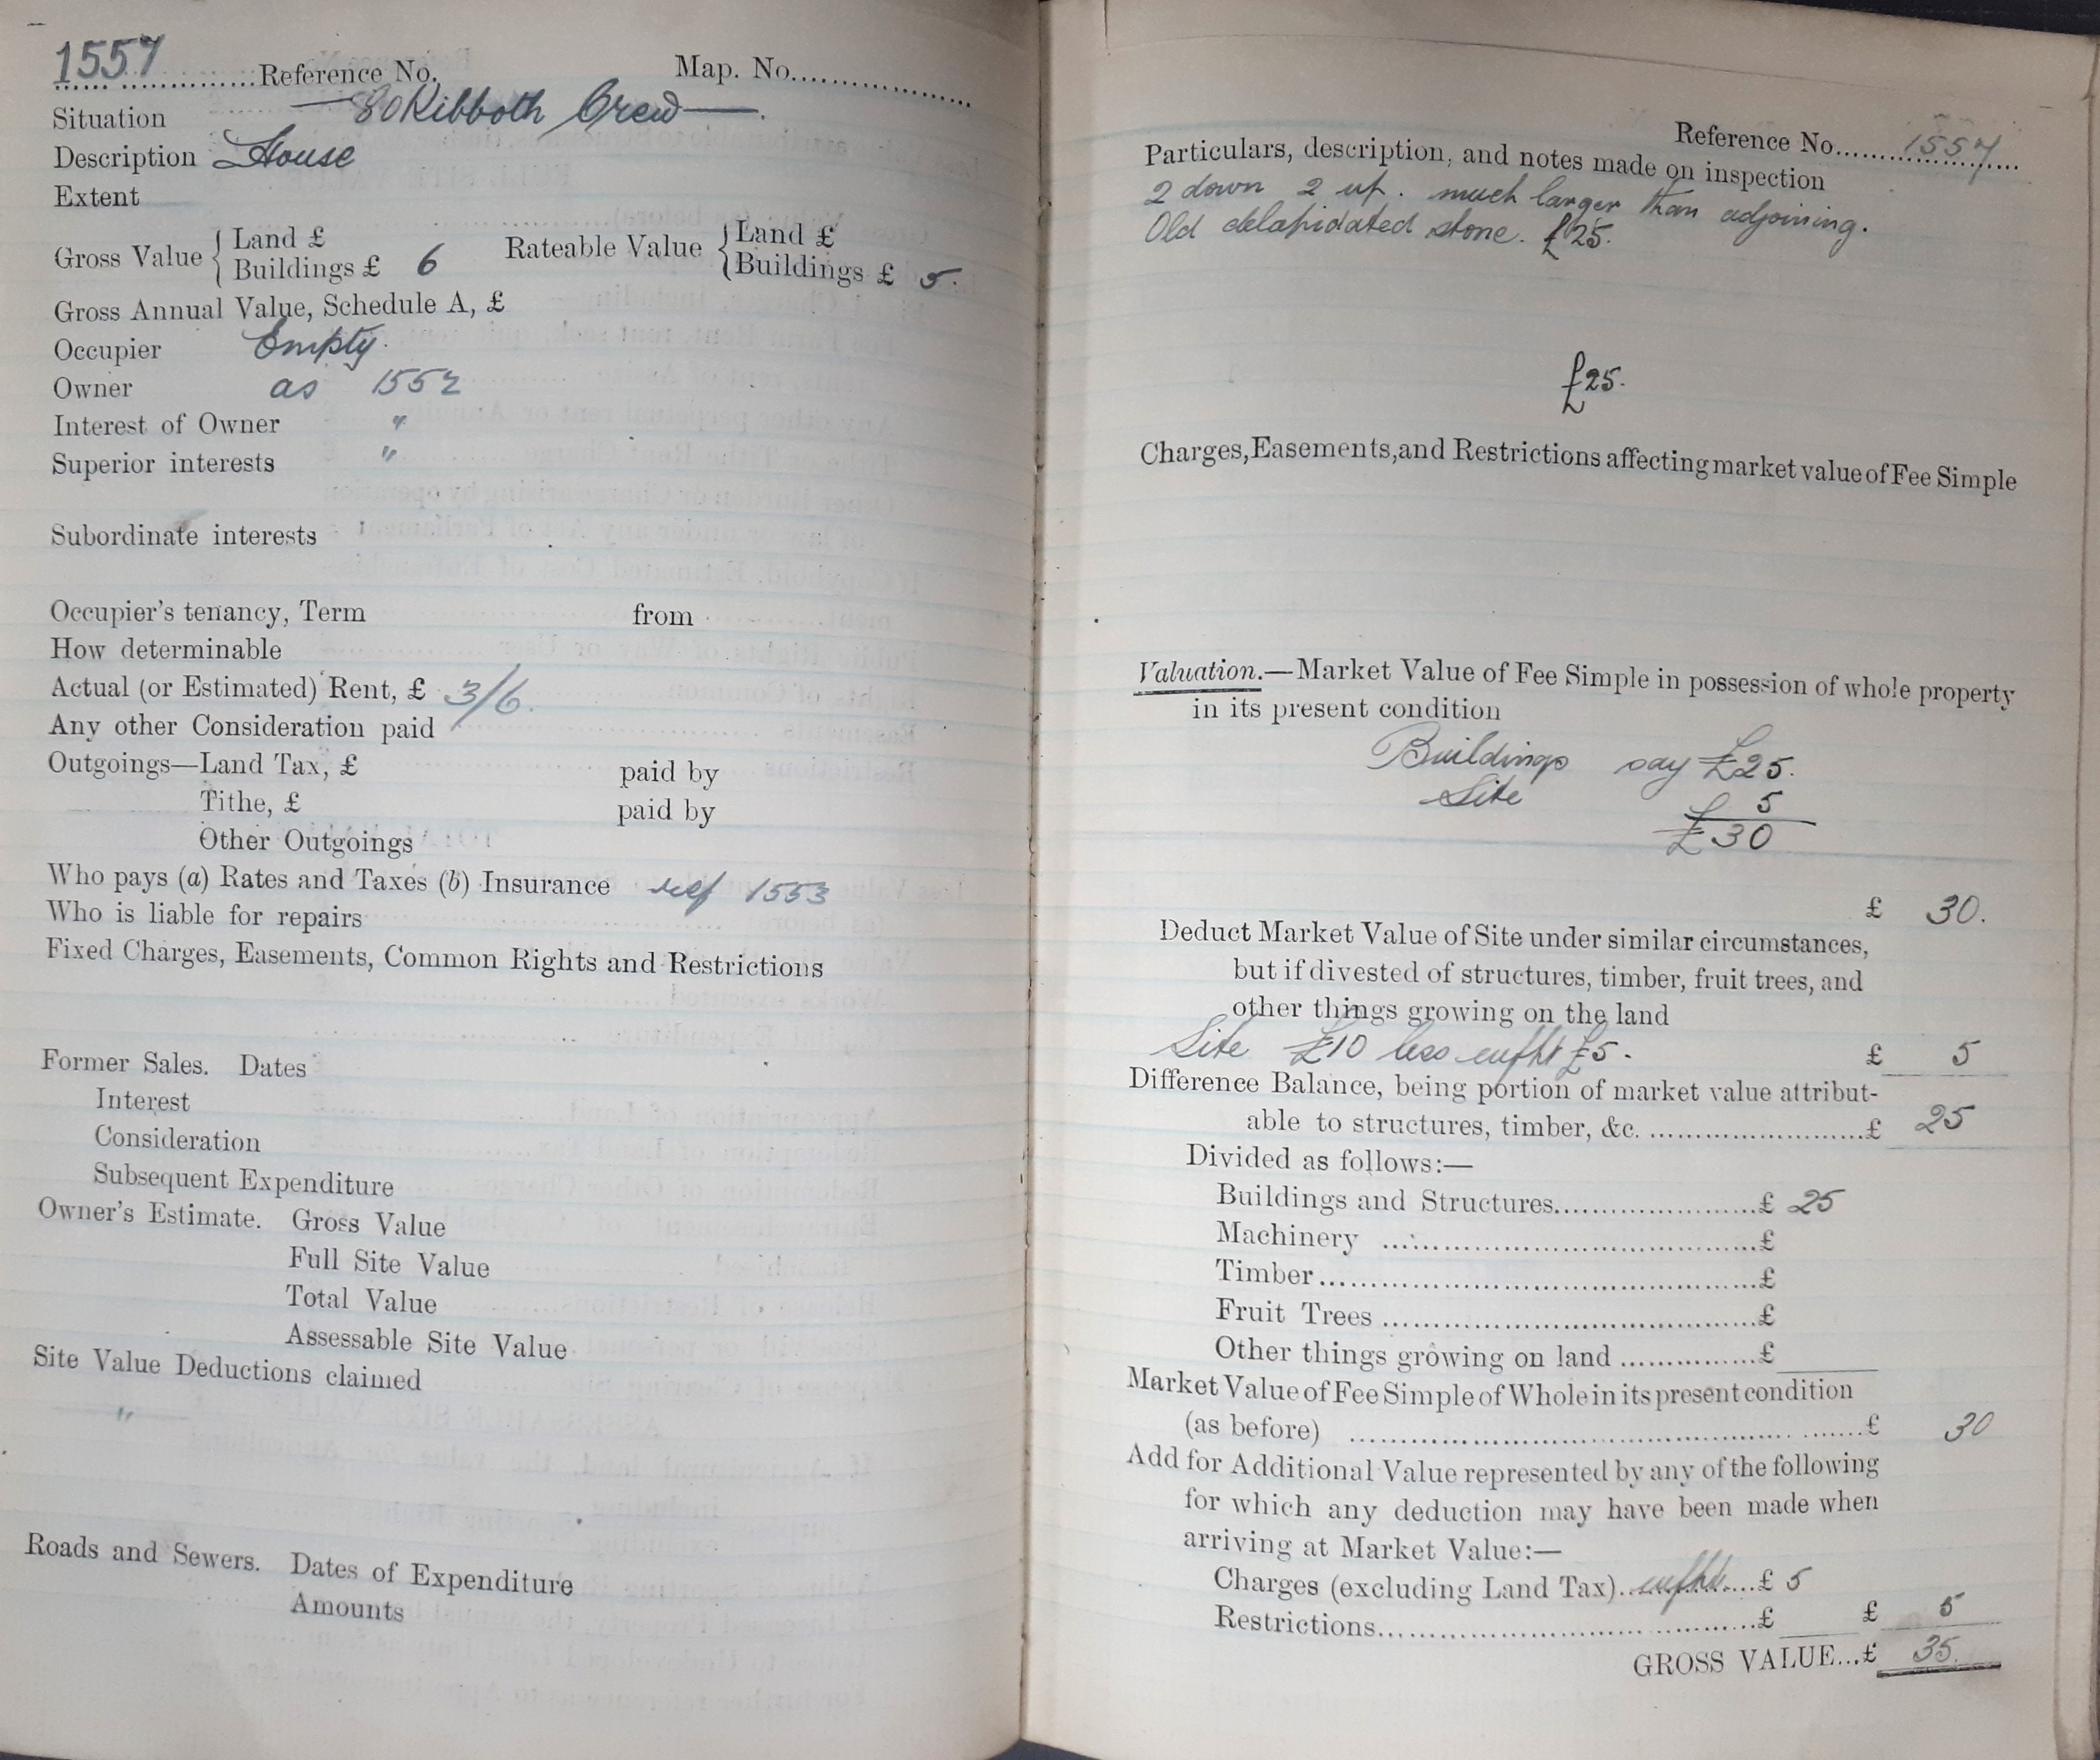 1557 Reference No. Map. No.
Situation 80 Kibboth Crew
Description House
Extent
Gross Value { Land £ Rateable Value { Land £
Buildings £ 6 Buildings £ 5.
Gross Annual Value, Schedule A, £
Occupier Empty.
Owner as 1552
Interest of Owner "
Superior interests "
Subordinate interests
Occupier's tenancy, Term from
How determinable
Actual (or Estimated) Rent, £ 3/6.
Any other Consideration paid
Outgoings—Land Tax, £ paid by
Tithe, £ paid by
Other Outgoings
Who pays (a) Rates and Taxes (b) Insurance ref 1553
Who is liable for repairs
Fixed Charges, Easements, Common Rights and Restrictions
Former Sales. Dates
Interest
Consideration
Subsequent Expenditure
Owner's Estimate. Gross Value
Full Site Value
Total Value
Assessable Site Value
Site Value Deductions claimed
"
Roads and Sewers. Dates of Expenditure
Amounts
Reference No. 1557
Particulars, description, and notes made on inspection
2 down 2 up. much larger than adjoining.
Old delapidated stone. £25.
£25.
Charges, Easements, and Restrictions affecting market value of Fee Simple
Valuation.—Market Value of Fee Simple in possession of whole property
in its present condition
Buildings say £25.
Site 5
£30
£ 30.
Deduct Market Value of Site under similar circumstances,
but if divested of structures, timber, fruit trees, and
other things growing on the land
Site £10 less £5. £ 5
Difference Balance, being portion of market value attribut-
able to structures, timber, &c. £ 25
Divided as follows:—
Buildings and Structures £ 25
Machinery £
Timber £
Fruit Trees £
Other things growing on land £
Market Value of Fee Simple of Whole in its present condition
(as before) £ 30
Add for Additional Value represented by any of the following
for which any deduction may have been made when
arriving at Market Value:—
Charges (excluding Land Tax) £ 5
Restrictions £ £ 5
GROSS VALUE...£ 35.